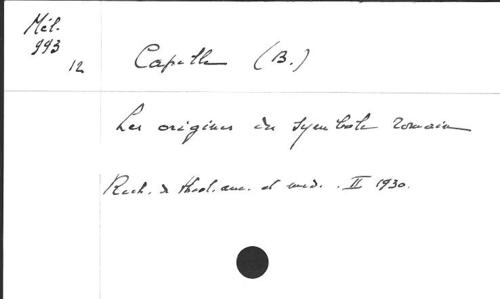 Mél.
993
12
Capelle (B.)
Les origines du symbole romain
Rech. de théol. anc. et méd. . II 1930.